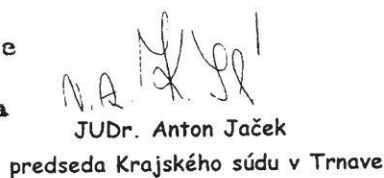 e
a
JUDr. Anton Jaček
predseda Krajského súdu v Trnave